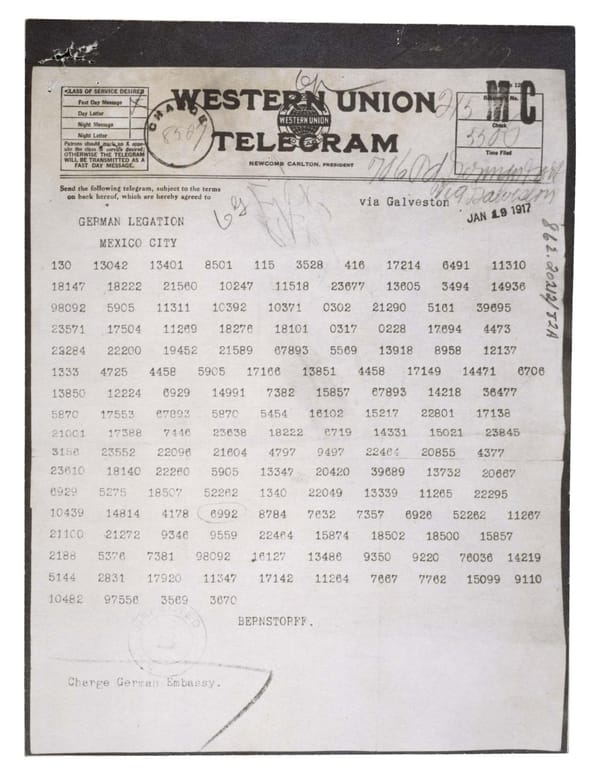 CLASS OF SERVICE DESIRED
Fast Day Message
Day Letter
Night Message
Night Letter
Patrons should mark an X opposite the class of service desired;
OTHERWISE THE TELEGRAM
WILL BE TRANSMITTED AS A
FAST DAY MESSAGE.
CHARGE
WESTERN UNION
WESTERN UNION
TELEGRAM
NEWCOMB CARLTON, PRESIDENT
Check
Time Filed
Send the following telegram, subject to the terms
on back hereof, which are hereby agreed to
via Galveston
JAN 19 1917
GERMAN LEGATION
MEXICO CITY
130 13042 13401 8501 115 3528 416 17214 6491 11310
18147 18222 21560 10247 11518 23677 13605 3494 14936
98092 5905 11311 10392 10371 0302 21290 5161 39695
23571 17504 11269 18276 18101 0317 0228 17694 4473
23284 22200 19452 21589 67893 5569 13918 8958 12137
1333 4725 4458 5905 17166 13851 4458 17149 14471 6706
13850 12224 6929 14991 7382 15857 67893 14218 36477
5870 17553 67893 5870 5454 16102 15217 22801 17138
21001 17388 7446 23638 18222 6719 14331 15021 23845
3156 23552 22096 21604 4797 9497 22464 20855 4377
23610 18140 22260 5905 13347 20420 39689 13732 20667
6929 5275 18507 52262 1340 22049 13339 11265 22295
10439 14814 4178 6992 8784 7632 7357 6926 52262 11267
21100 21272 9346 9559 22464 15874 18502 18500 15857
2188 5376 7381 98092 16127 13486 9350 9220 76036 14219
5144 2831 17920 11347 17142 11264 7667 7762 15099 9110
10482 97556 3569 3670
BERNSTORFF.
Charge German Embassy.
862.20212/82A